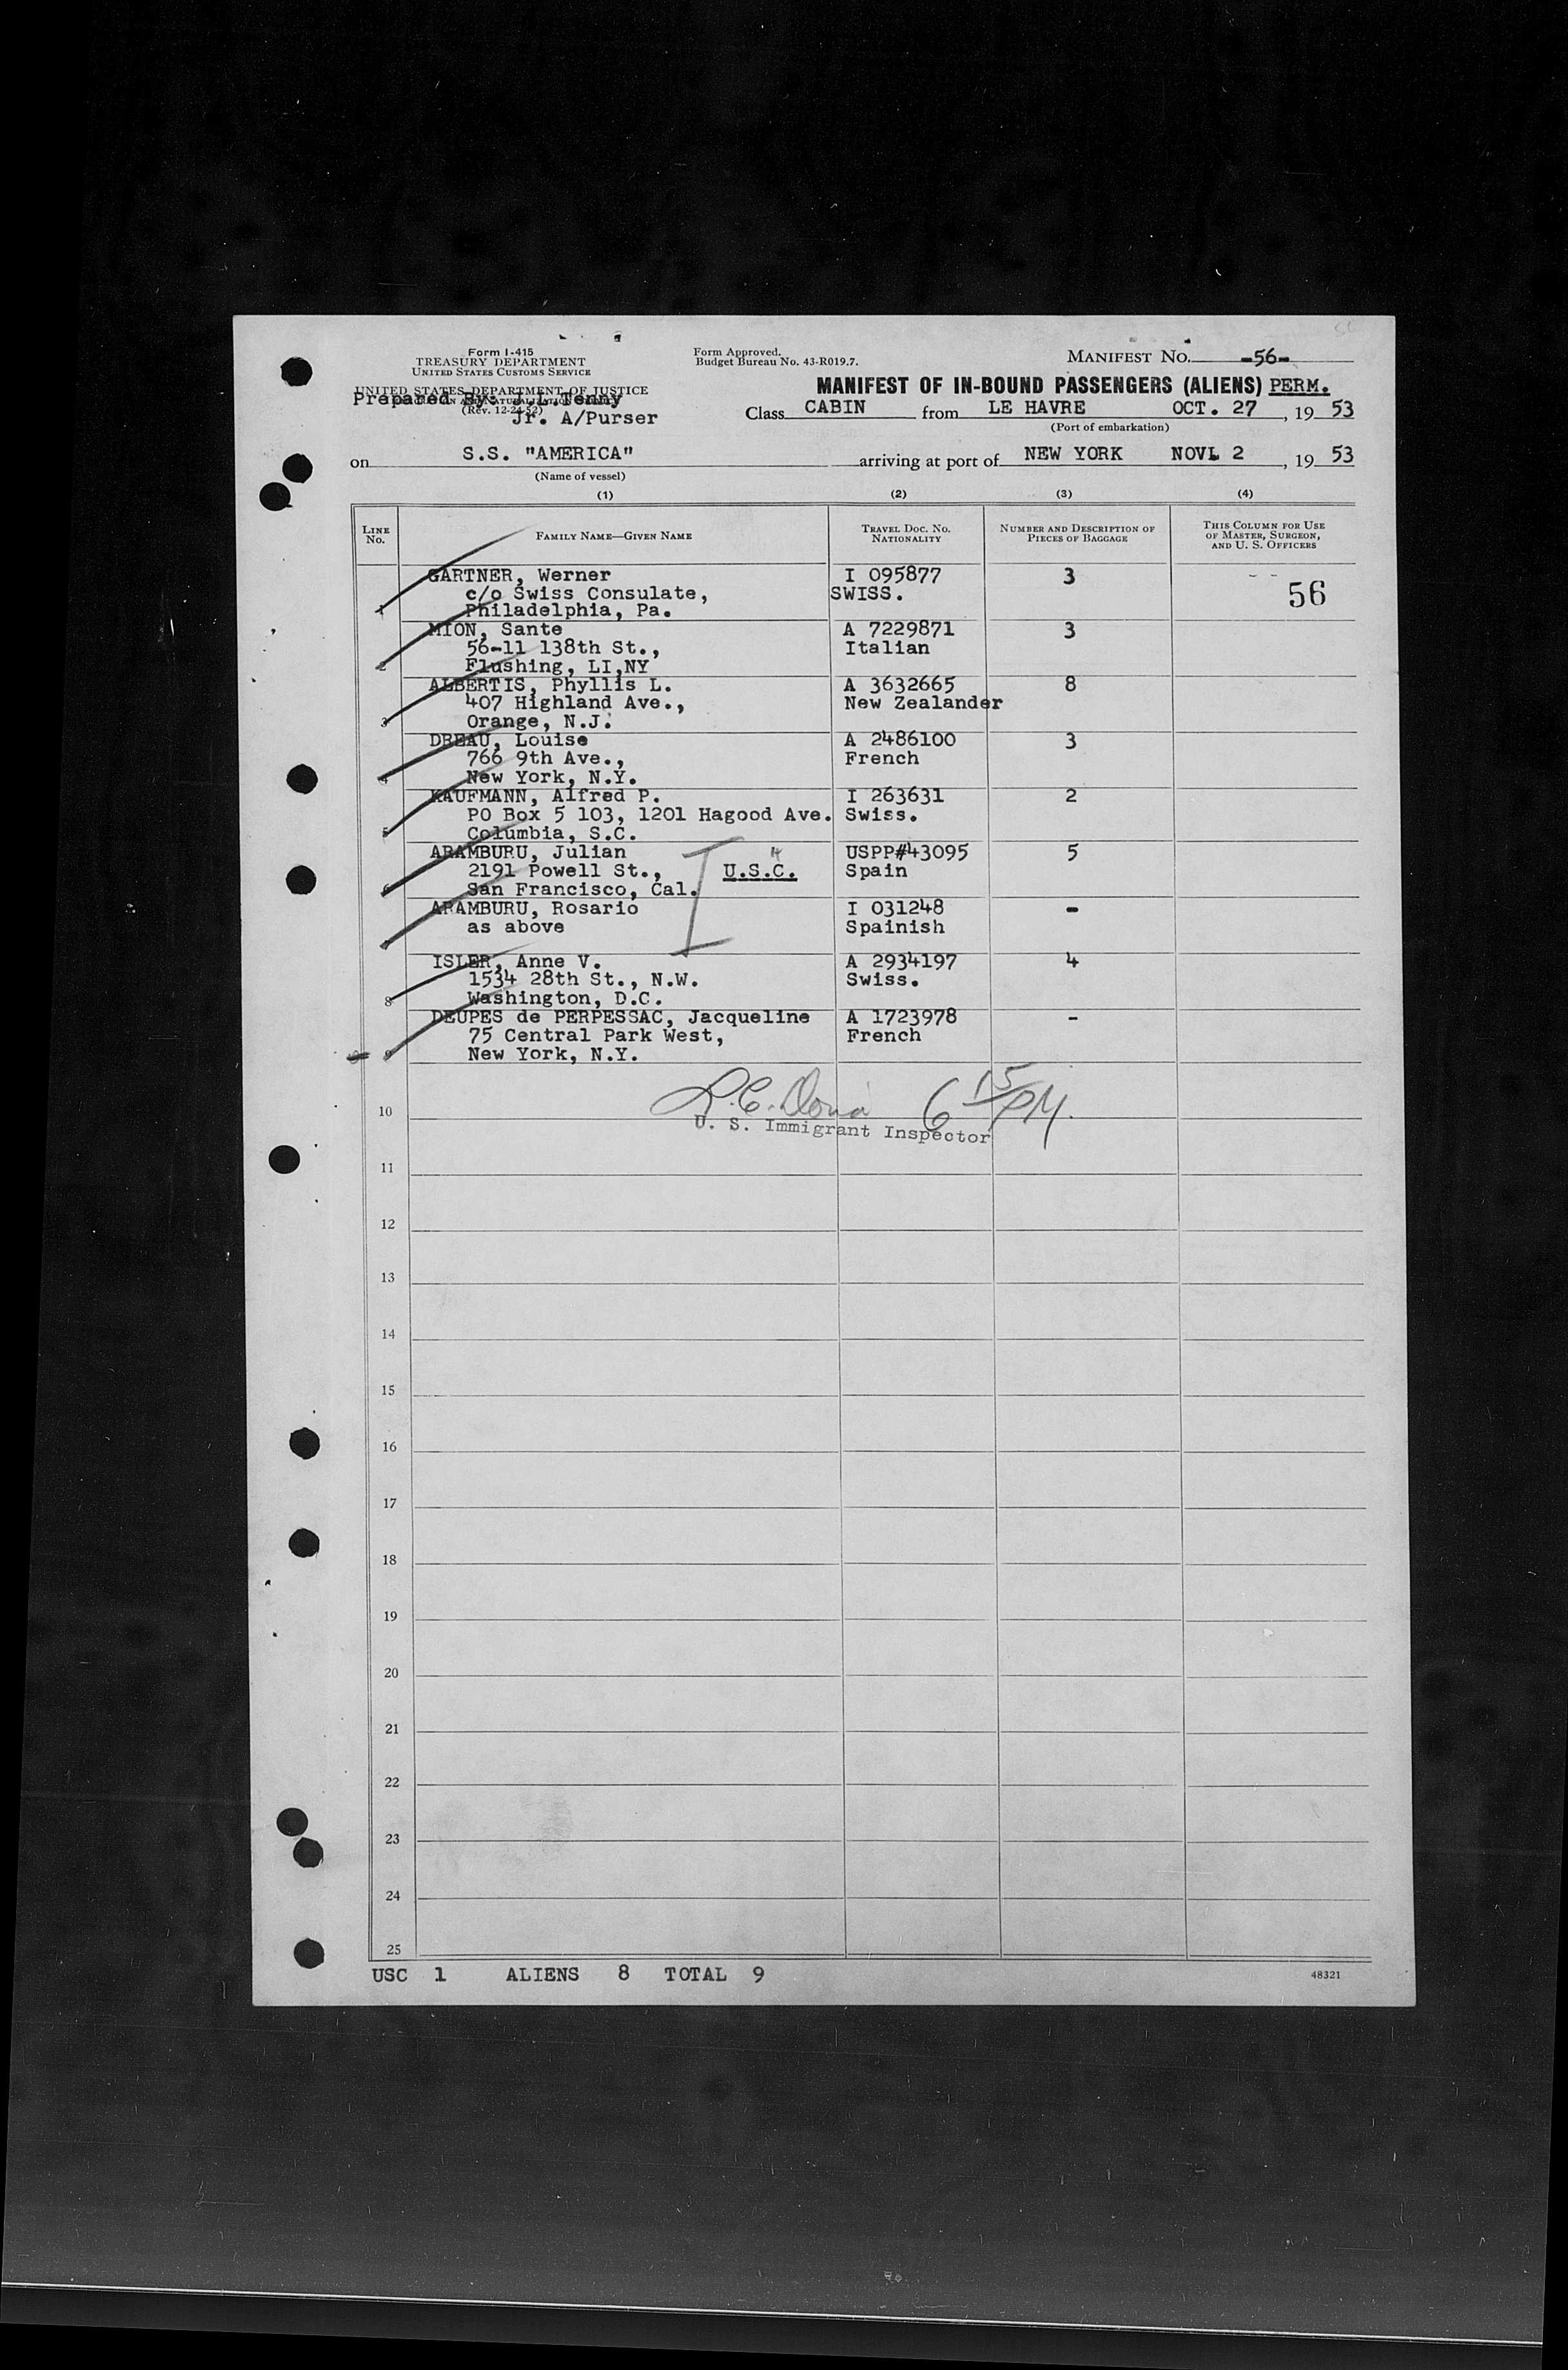 Form I-415
TREASURY DEPARTMENT
UNITED STATES CUSTOMS SERVICE
UNITED STATES DEPARTMENT OF JUSTICE
(Rev. 12-24-52)
Prepared By: J.L.Tenny
Jr. A/Purser
Form Approved.
Budget Bureau No. 43-R019.7.
MANIFEST NO. -56-
MANIFEST OF IN-BOUND PASSENGERS (ALIENS) PERM.
Class CABIN from LE HAVRE OCT. 27, 1953
(Port of embarkation)
on S.S. "AMERICA" arriving at port of NEW YORK NOVL 2, 1953
(Name of vessel)
(1) (2) (3) (4)
LINE NO. FAMILY NAME—GIVEN NAME TRAVEL DOC. NO. NATIONALITY NUMBER AND DESCRIPTION OF PIECES OF BAGGAGE THIS COLUMN FOR USE OF MASTER, SURGEON, AND U. S. OFFICERS
GARTNER, Werner I 095877 3
c/o Swiss Consulate, SWISS. 56
1 Philadelphia, Pa.
MION, Sante A 7229871 3
56-11 138th St., Italian
2 Flushing, LI,NY
ALBERTIS, Phyllis L. A 3632665 8
407 Highland Ave., New Zealander
3 Orange, N.J.
DREAU, Louise A 2486100 3
766 9th Ave., French
4 New York, N.Y.
KAUFMANN, Alfred P. I 263631 2
PO Box 5 103, 1201 Hagood Ave. Swiss.
5 Columbia, S.C.
ARAMBURU, Julian USPP#43095 5
2191 Powell St., U.S.C. Spain
6 San Francisco, Cal.
ARAMBURU, Rosario I 031248 -
as above Spainish
7
ISLER, Anne V. A 2934197 4
1534 28th St., N.W. Swiss.
8 Washington, D.C.
DEUPES de PERPESSAC, Jacqueline A 1723978 -
75 Central Park West, French
9 New York, N.Y.
6 15/PM.
10
U. S. Immigrant Inspector
11
12
13
14
15
16
17
18
19
20
21
22
23
24
25
USC 1 ALIENS 8 TOTAL 9
48321